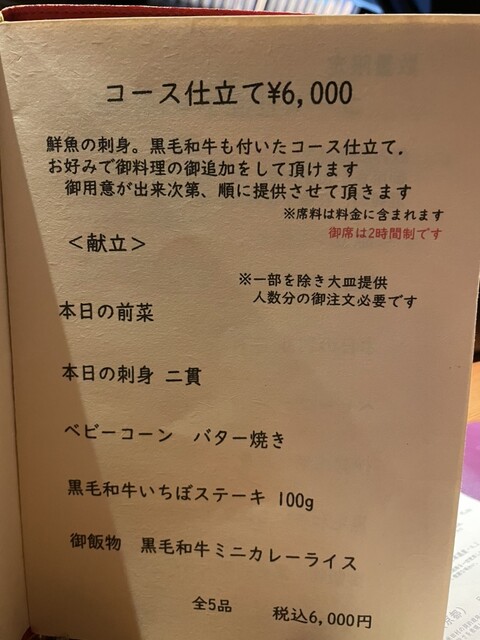 コース仕立て¥6,000
鮮魚の刺身。黒毛和牛も付いたコース仕立て.
お好みで御料理の御追加をして頂けます
御用意が出来次第、順に提供させて頂きます
※席料は料金に含まれます
御席は2時間制です
＜献立＞
※一部を除き大皿提供
人数分の御注文必要です
本日の前菜
本日の刺身 二貫
ベビーコーン　バター焼き
黒毛和牛いちぼステーキ 100g
御飯物　黒毛和牛ミニカレーライス
全5品　税込6,000円